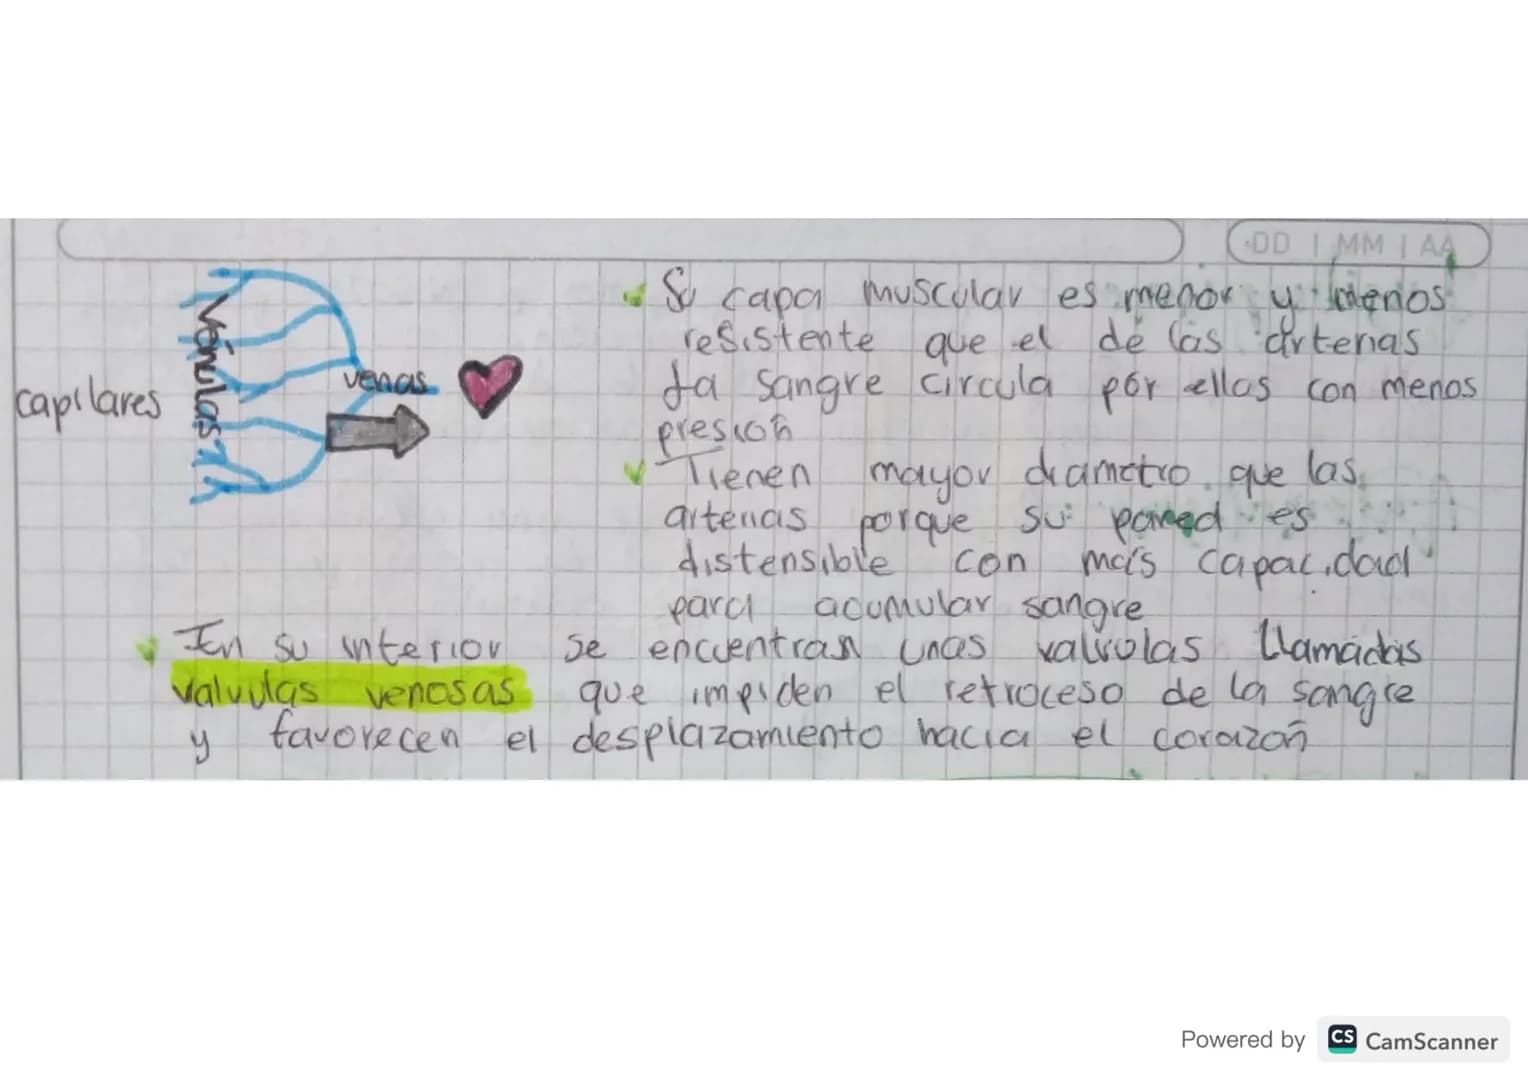 DD | MM | AA
Su capa muscular es menor y menos
resistente que el de las arterias
La sangre circula por ellas con menos
presión
Tienen mayor diametro que las
arterias porque su pared es
distensible con más capacidad
para acumular sangre
capilares
Vénulas
venas
En su interior se encuentran unas valvolas llamadas
valvulas venosas que impiden el retroceso de la sangre
y favorecen el desplazamiento hacia el corazón
Powered by CS CamScanner